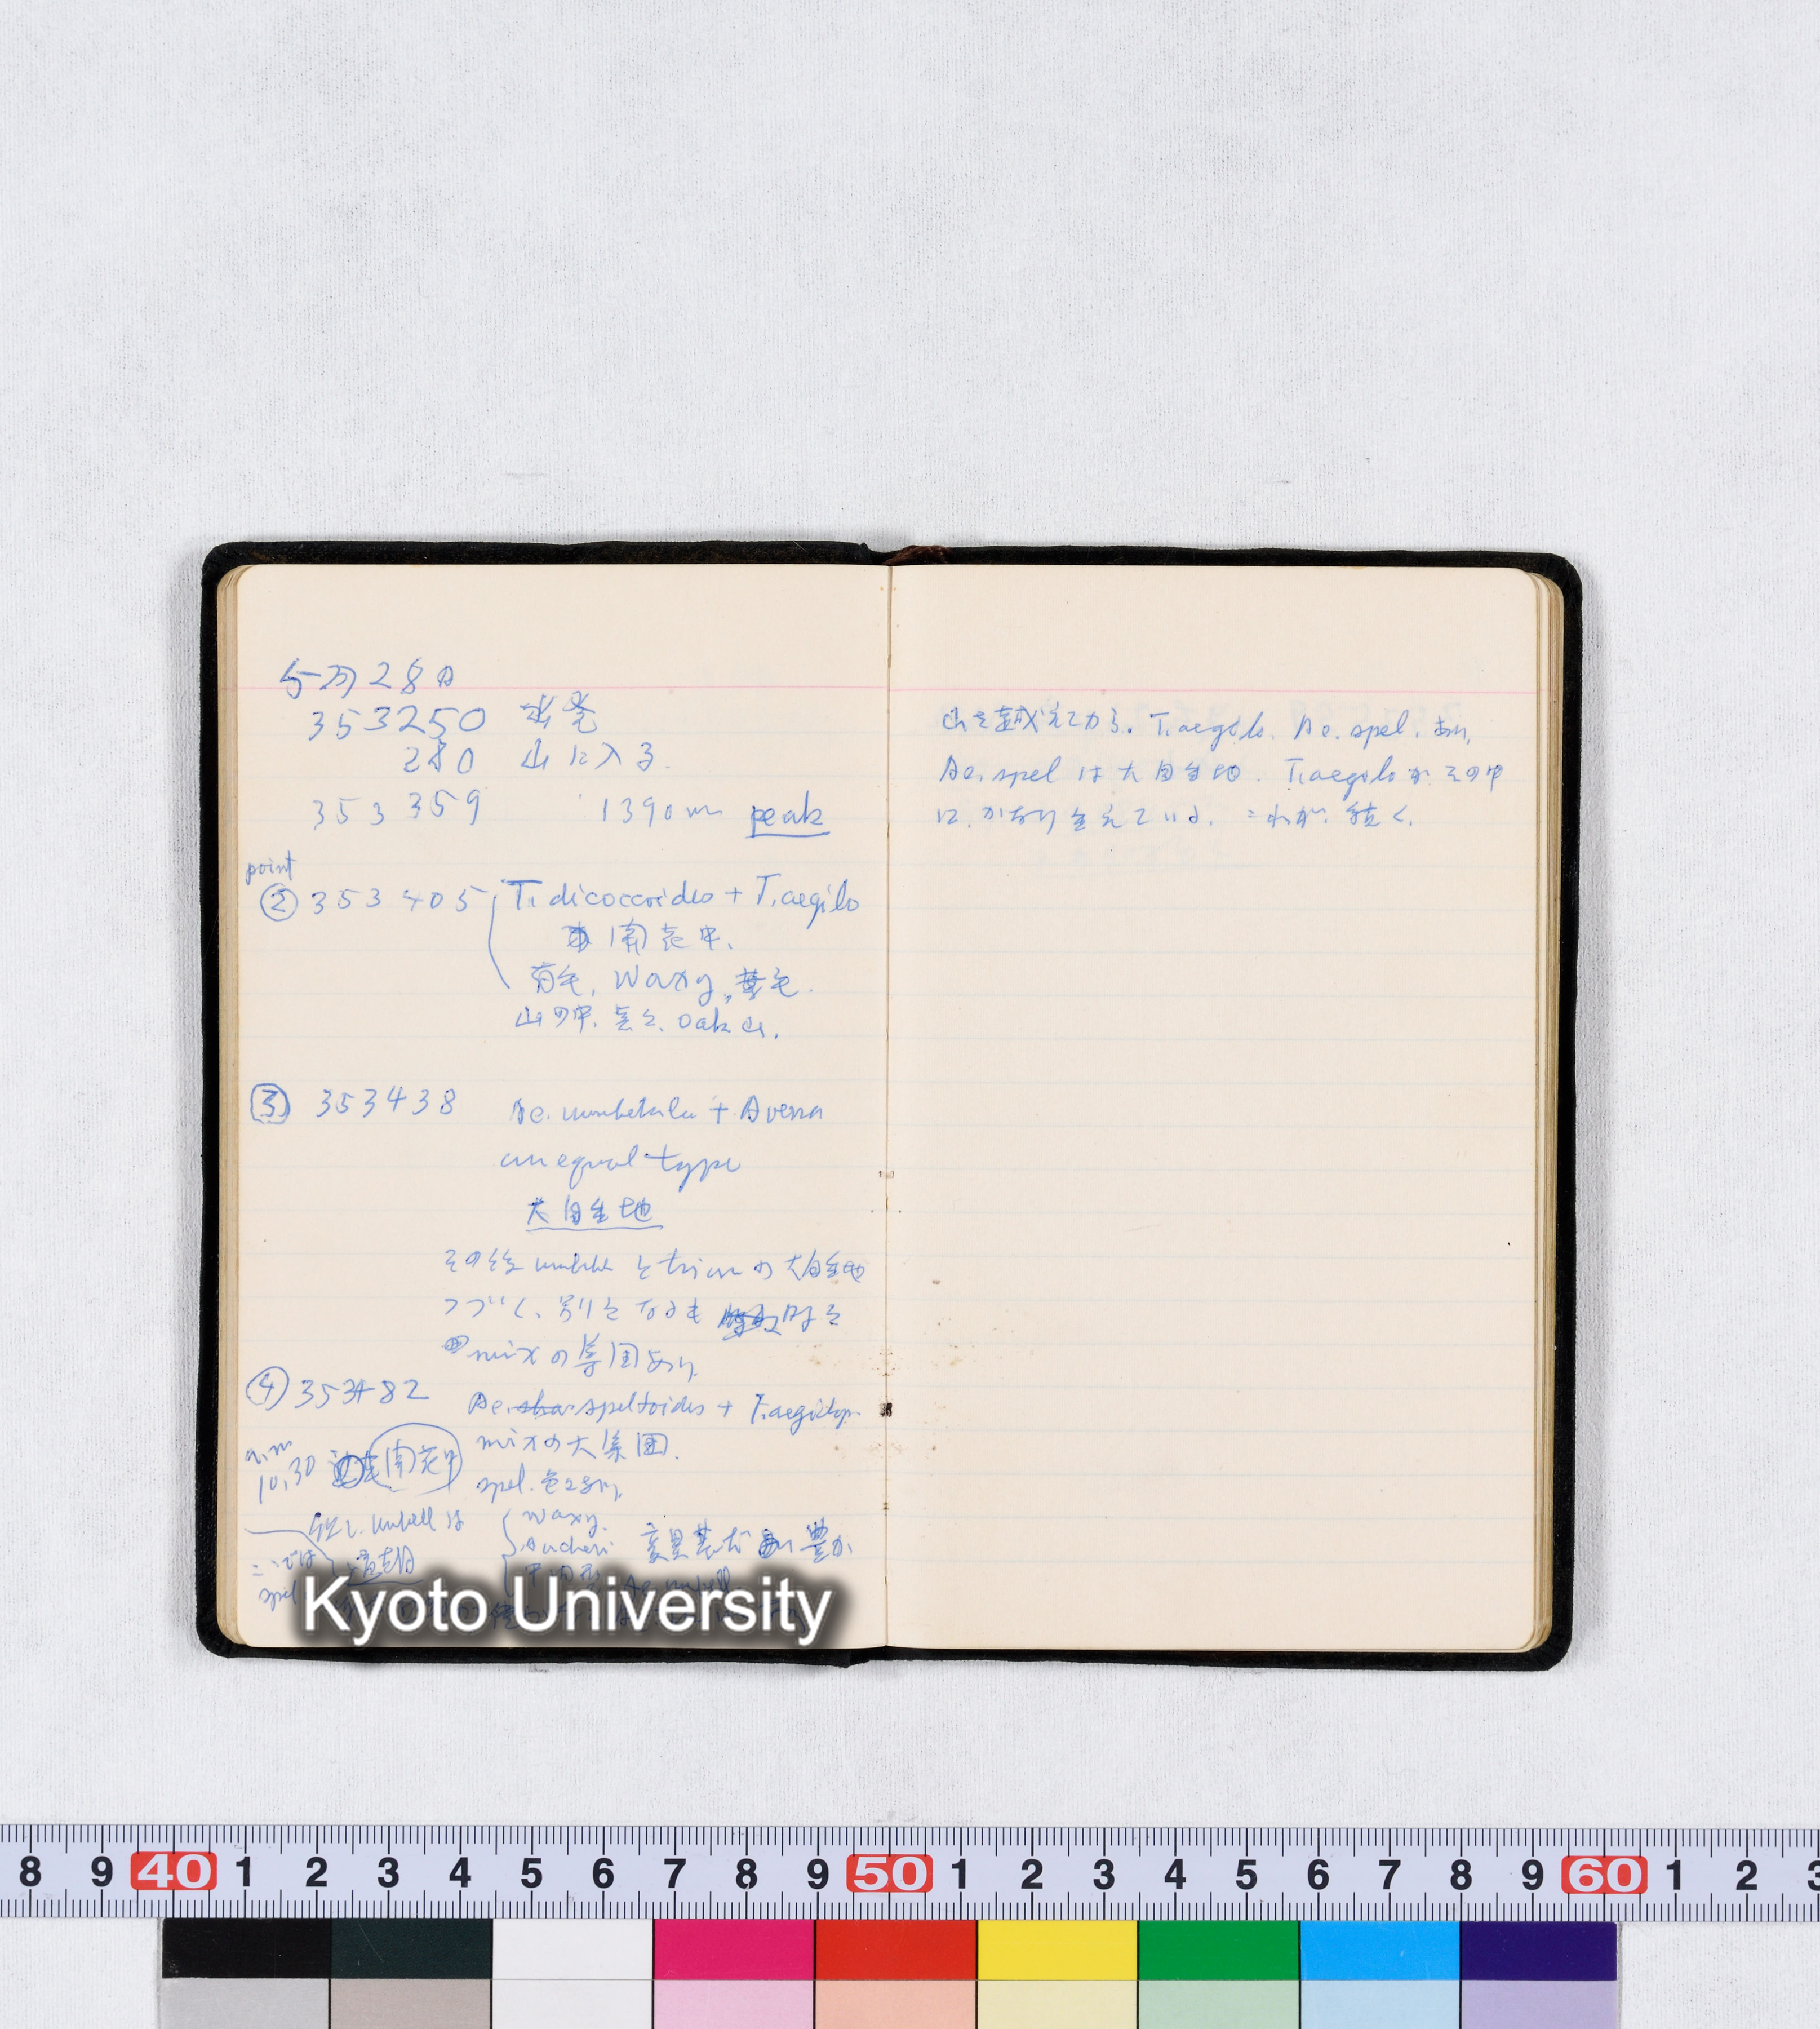 5月28日
353250 出発
280 山に入る.
353359 1390m peak
point
② 353405 T. dicoccoides + T. aegilo
開花中.
有毛, Waxy, 無毛.
山の中, Oak 山.
③ 353438 Ae. umbellula + Avena
unequal type
大自生地
その後 umbell とtriunの大自生地
つづく、別となるも 時々
mixの集団あり.
④ 353482 Ae. speltoides + T. aegilop.
a.m 10.30 開花中
mixの大集団.
spel. 色々あり,
但し. umbell は
Waxy.
Aucheri 変異 豊か
ここでは
spel
Kyoto University
山を越えてから. T. aegilo. Ae. spel. あり,
Ae. spel は大自生地. T. aegilo が その中
に かなり生えている. これが 続く.
8 9 40 1 2 3 4 5 6 7 8 9 50 1 2 3 4 5 6 7 8 9 60 1 2 3